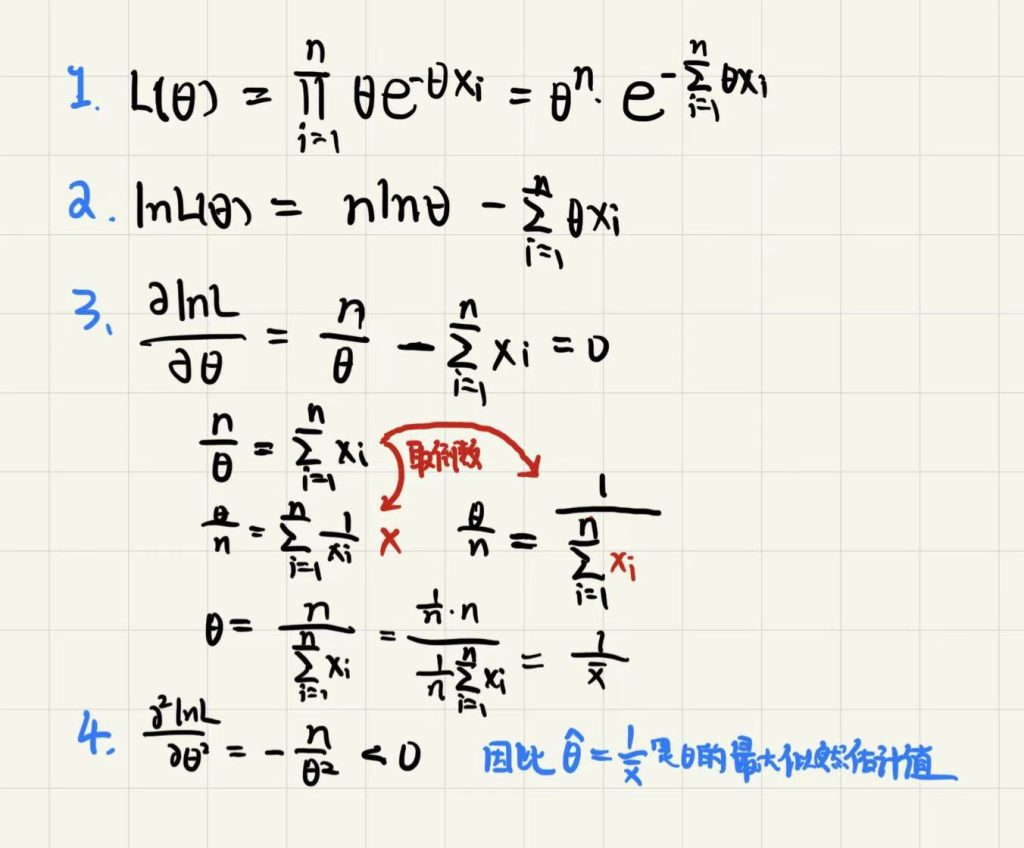 1. L(θ) = ∏_{i=1}^{n} θe^{-θx_i} = θ^n · e^{-∑_{i=1}^{n} θx_i}
2. lnL(θ) = nlnθ - ∑_{i=1}^{n} θx_i
3. ∂lnL/∂θ = n/θ - ∑_{i=1}^{n} x_i = 0
n/θ = ∑_{i=1}^{n} x_i 取倒数
θ/n = ∑_{i=1}^{n} 1/x_i × θ/n = 1/∑_{i=1}^{n} x_i
θ = n/∑_{i=1}^{n} x_i = (1/n · n)/(1/n ∑_{i=1}^{n} x_i) = 1/x̄
4. ∂²lnL/∂θ² = - n/θ² < 0 因此 θ̂ = 1/x̄ 是θ的最大似然估计值